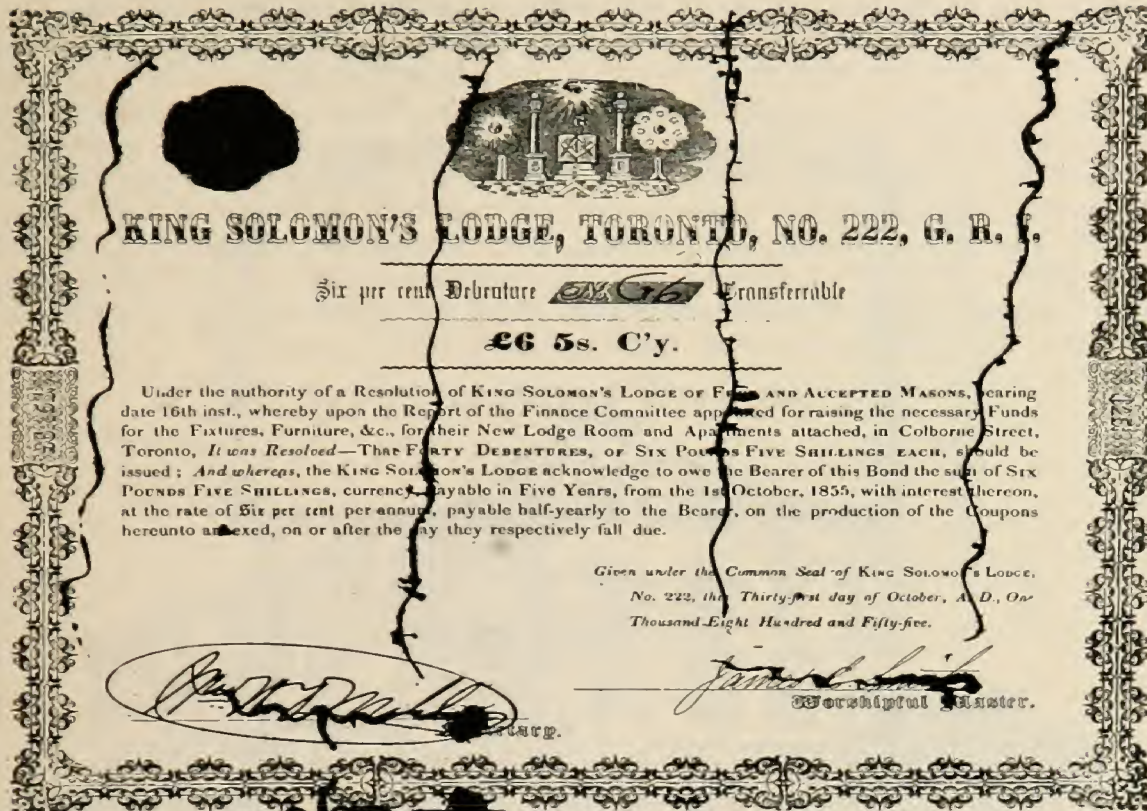 KING SOLOMON'S LODGE, TORONTO, NO. 222, G. R. I.
Six per cent Debenture No. 36 Transferrable
£6 5s. C'y.
Under the authority of a Resolution of KING SOLOMON'S LODGE OF FREE AND ACCEPTED MASONS, bearing
date 16th inst., whereby upon the Report of the Finance Committee appointed for raising the necessary Funds
for the Fixtures, Furniture, &c., for their New Lodge Room and Apartments attached, in Colborne Street,
Toronto, It was Resolved—That FORTY DEBENTURES, OF SIX POUNDS FIVE SHILLINGS EACH, should be
issued; And whereas, the KING SOLOMON'S LODGE acknowledge to owe the Bearer of this Bond the sum of SIX
POUNDS FIVE SHILLINGS, currency, payable in Five Years, from the 1st October, 1855, with interest thereon,
at the rate of Six per cent per annum, payable half-yearly to the Bearer, on the production of the Coupons
hereunto annexed, on or after the day they respectively fall due.
Given under the Common Seal of KING SOLOMON'S LODGE,
No. 222, this Thirty-first day of October, A. D., One
Thousand Eight Hundred and Fifty-five.
James Smith
Worshipful Master.
Secretary.